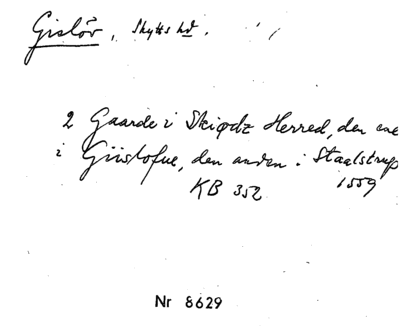 Gislöv, Skytts hd.
2 Gaarde i Skiødz Herred, den ene
i Giislofue, den anden i Staalstrup
KB 352 1559
Nr 8629